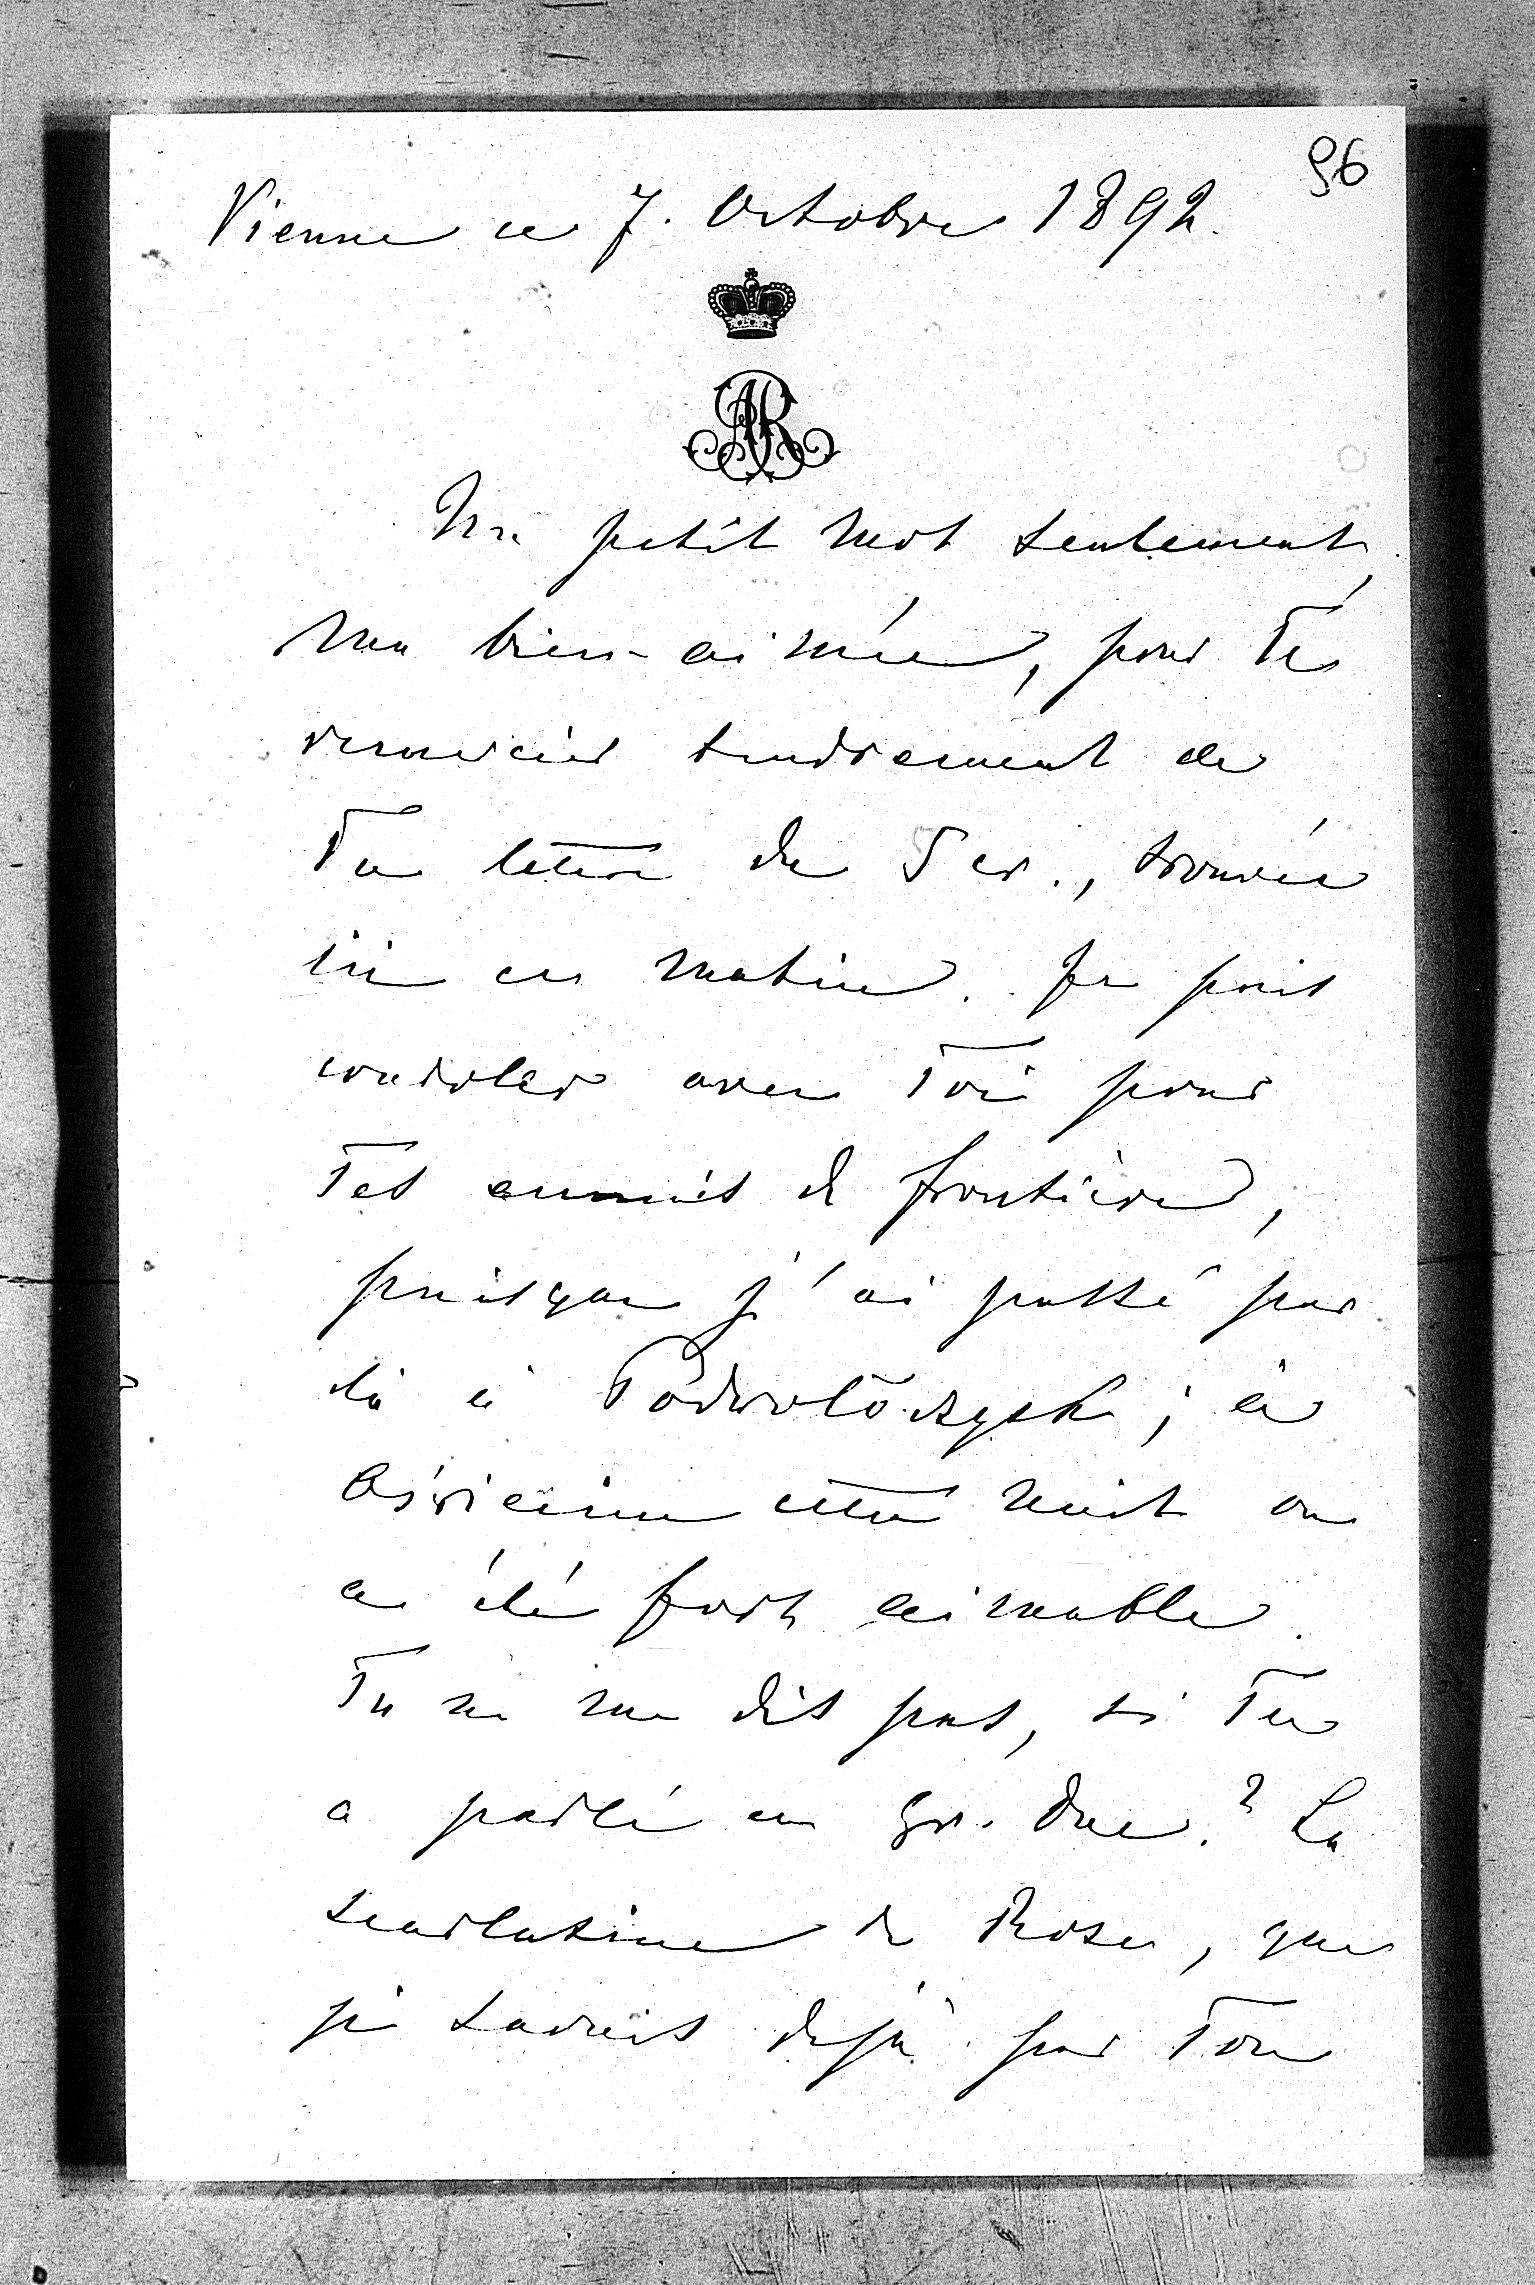 96
Vienne ce 7. Octobre 1892.
AR
Un petit mot seulement,
ma bien-aimée, pour Te
remercier tendrement de
Ta lettre du 5 cr., trouvée
ici ce matin. Je puis
avec Toi pour
Tes ennuis de frontière,
puisque j'ai passé par
là à Podwoloczysk; à
Oświecim cette nuit on
a été fort aimable.
Tu ne me dis pas, si Tu
a parlé au Gr. Duc.? La
scarlatine de Rosa, que
je savais déjà par Ton